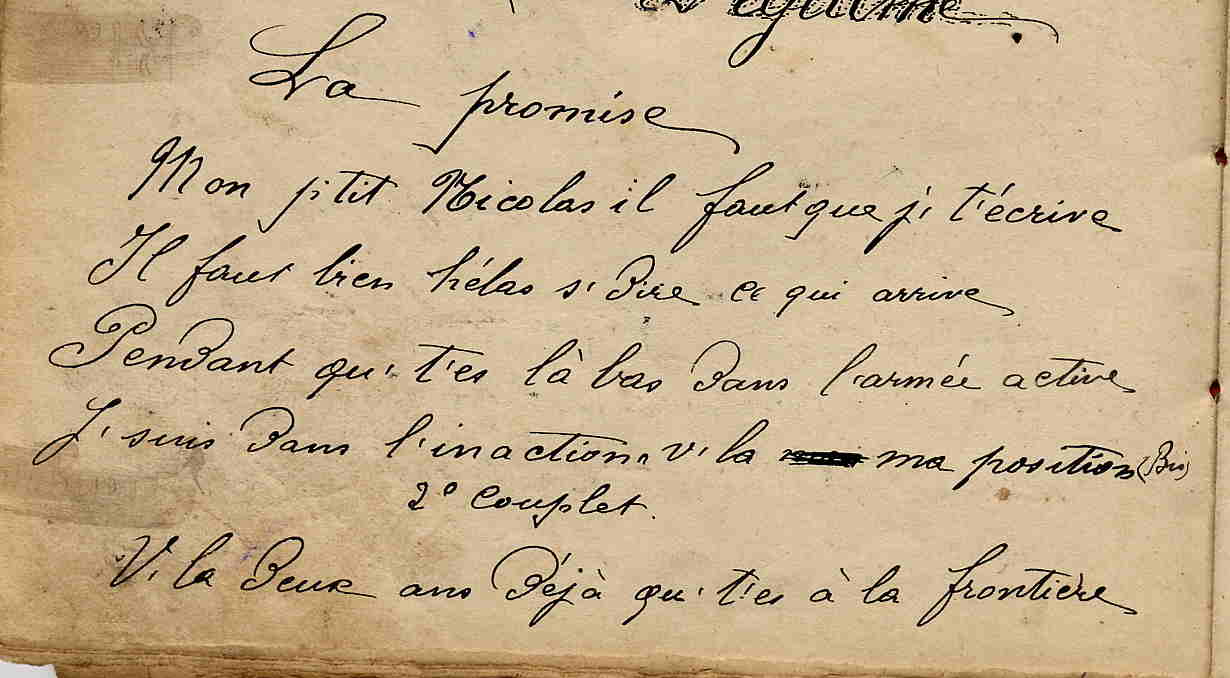 La promise
Mon p'tit Nicolas il faut que j' t'écrive
Il faut bien hélas s' dire ce qui arrive
Pendant qu' t'es là bas dans l'armée active
J' suis dans l'inaction, v' la ma position (Bis)
2e Couplet.
V' la deux ans déjà qu' t'es à la frontière